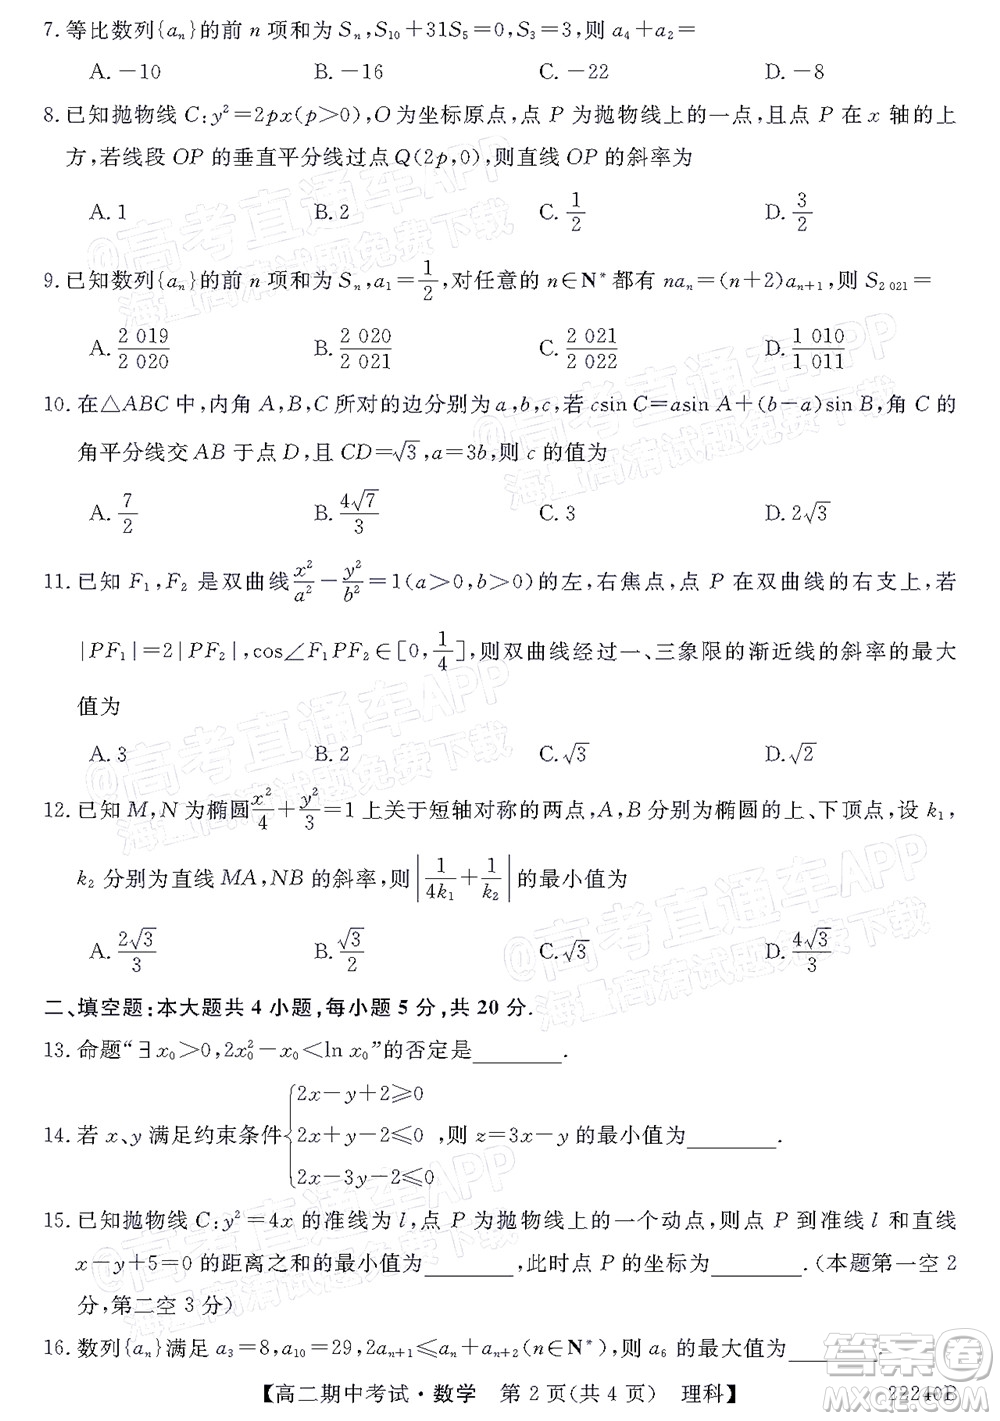 7. 等比数列{aₙ}的前 n 项和为 Sₙ,S₁₀+31S₅=0,S₃=3,则 a₄+a₂=
A. -10 B. -16 C. -22 D. -8
8. 已知抛物线 C:y²=2px(p>0),O 为坐标原点,点 P 为抛物线上的一点,且点 P 在 x 轴的上
方,若线段 OP 的垂直平分线过点 Q(2p,0),则直线 OP 的斜率为
A. 1 B. 2 C. 1/2 D. 3/2
9. 已知数列{aₙ}的前 n 项和为 Sₙ,a₁=1/2,对任意的 n∈N* 都有 naₙ=(n+2)aₙ₊₁,则 S₂ ₀₂₁=
A. 2 019/2 020 B. 2 020/2 021 C. 2 021/2 022 D. 1 010/1 011
10. 在△ABC 中,内角 A,B,C 所对的边分别为 a,b,c,若 csin C=asin A+(b-a)sin B,角 C 的
角平分线交 AB 于点 D,且 CD=√3,a=3b,则 c 的值为
A. 7/2 B. 4√7/3 C. 3 D. 2√3
11. 已知 F₁,F₂ 是双曲线 x²/a² - y²/b² =1(a>0,b>0)的左,右焦点,点 P 在双曲线的右支上,若
|PF₁|=2|PF₂|,cos∠F₁PF₂∈[0,1/4],则双曲线经过一、三象限的渐近线的斜率的最大
值为
A. 3 B. 2 C. √3 D. √2
12. 已知 M,N 为椭圆 x²/4 + y²/3 =1 上关于短轴对称的两点,A、B 分别为椭圆的上、下顶点,设 k₁,
k₂ 分别为直线 MA,NB 的斜率,则 |1/4k₁ + 1/k₂| 的最小值为
A. 2√3/3 B. √3/2 C. √3 D. 4√3/3
二、填空题:本大题共 4 小题,每小题 5 分,共 20 分.
13. 命题“∃x₀>0,2x₀²-x₀<ln x₀”的否定是________.
14. 若 x、y 满足约束条件 {2x-y+2≥0 2x+y-2≤0 2x-3y-2≤0 ,则 z=3x-y 的最小值为________.
15. 已知抛物线 C:y²=4x 的准线为 l,点 P 为抛物线上的一个动点,则点 P 到准线 l 和直线
x-y+5=0 的距离之和的最小值为________,此时点 P 的坐标为________.(本题第一空 2
分,第二空 3 分)
16. 数列{aₙ}满足 a₃=8,a₁₀=29,2aₙ₊₁≤aₙ+aₙ₊₂(n∈N*),则 a₆ 的最大值为________.
【高二期中考试·数学 第 2 页(共 4 页) 理科】 22240B
@高考直通车APP
海量高清试题免费下载
@高考直通车APP
海量高清试题免费下载
@高考直通车APP
海量高清试题免费下载
@高考直通车APP
海量高清试题免费下载
@高考直通车APP
海量高清试题免费下载
答案圈
MXQE.COM